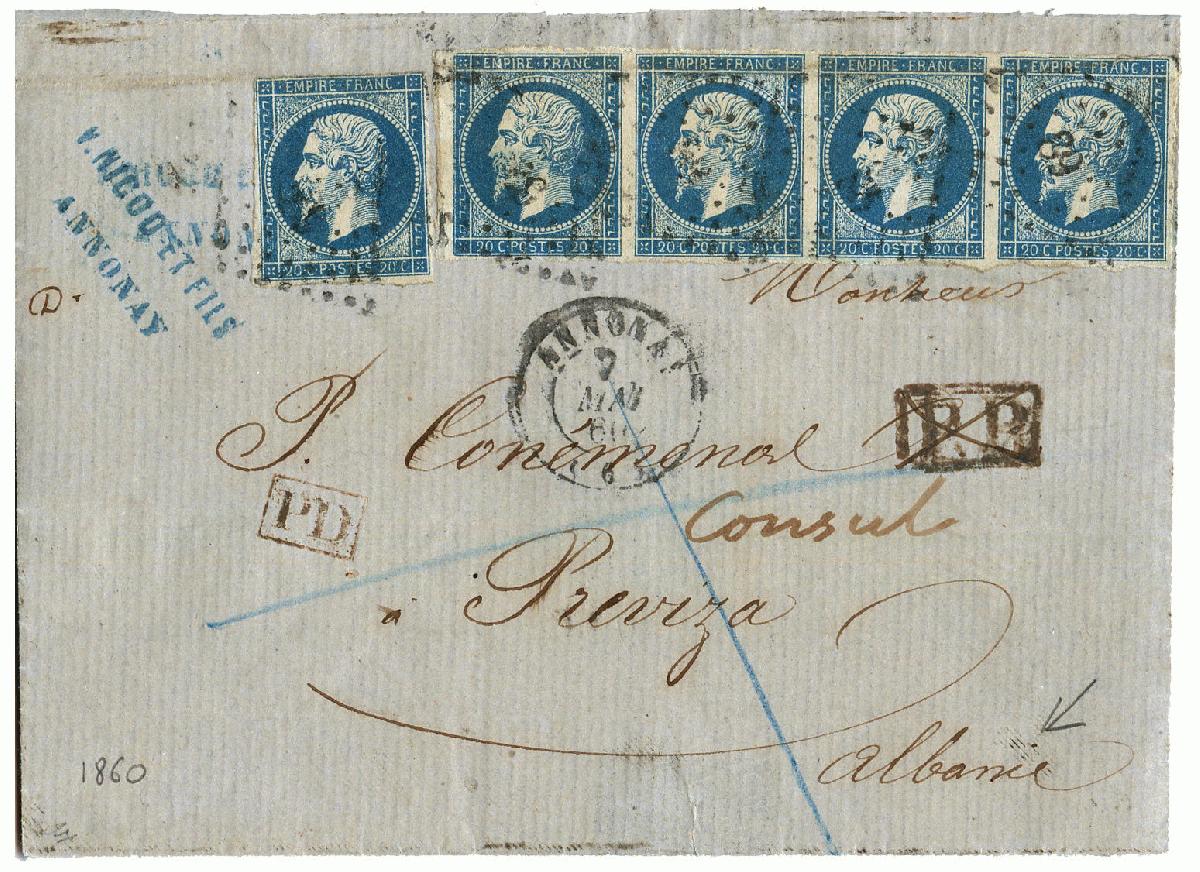 EMPIRE FRANC
20 C POSTES 20 C
EMPIRE FRANC
20 C POSTES 20 C
EMPIRE FRANC
20 C POSTES 20 C
EMPIRE FRANC
20 C POSTES 20 C
EMPIRE FRANC
20 C POSTES 20 C
89
NICOD ET FILS
ANNONAY
D.
Monsieur
ANNONAY
7
MAI
60
(6)
P. P.
P. Conemenos
PD
Consul
a Previza
Albanie
1860